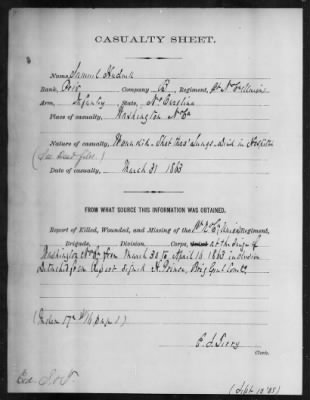 CASUALTY SHEET.
Name, Samuel
Rank, Priv Company B, Regiment, 1st N. Ca Union
Arm, Infantry State, No. Carolina
Place of casualty, Washington N. Ca
Nature of casualty, Wounded. Shot thro' Lungs. Died in Hospital
(See Files.)
Date of casualty, March 31 1863
FROM WHAT SOURCE THIS INFORMATION WAS OBTAINED.
Report of Killed, Wounded, and Missing of the 1st N. Ca Union Regiment,
Brigade, Division, Corps, at the Siege of
Washington N. Ca from March 30 to April 16 1863 inclusive
Report signed H. Prince, Brig Genl Comdg
(Under
Clerk.
(Sept 10 '85)